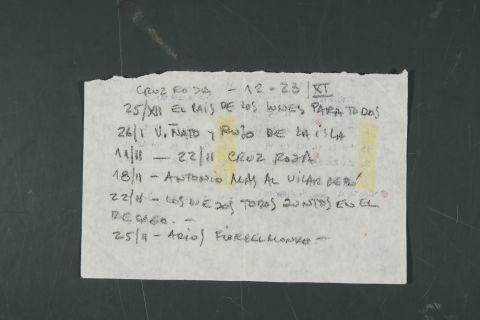 CRUZ ROJA - 12 - 23/XI
25/XII EL PAIS DE LOS LUNES PARA TODOS
26/I VIÑATO Y ROJO DE LA ISLA
11/II — 22/II CRUZ ROJA
18/II - ANTONIO MAS AL VILAR
22/II - LOS DOS TODOS JUNTOS EN EL
25/II - ADIOS